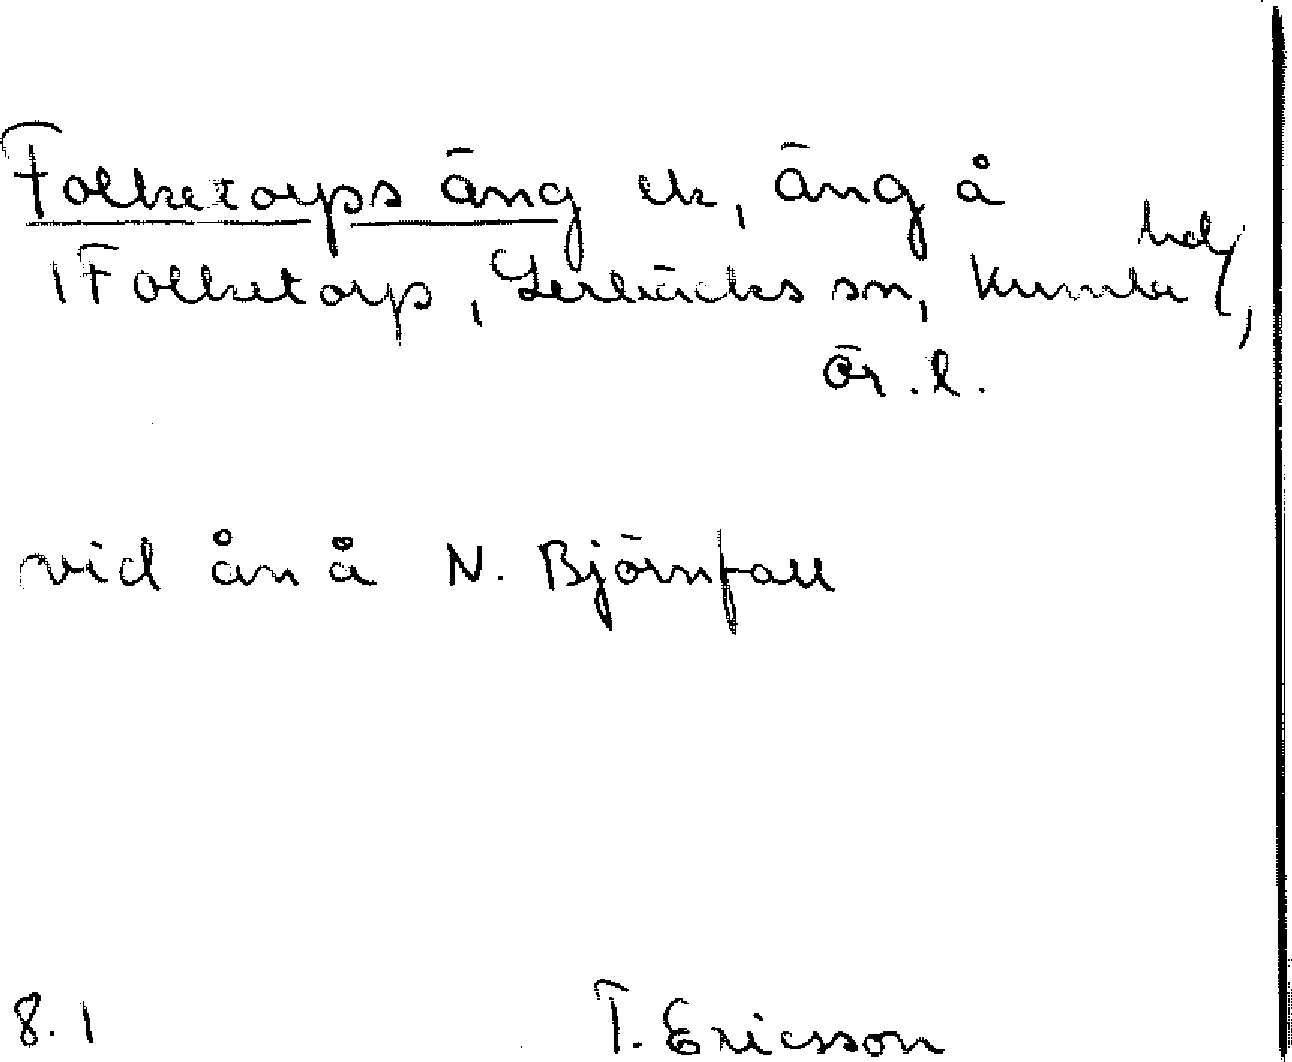 Folketorps äng ek, äng å
Folketorp, Lerbäcks sn, Kumla hd,
ör. l.
vid ån å N. Björnfall
8.1 T. Ericsson